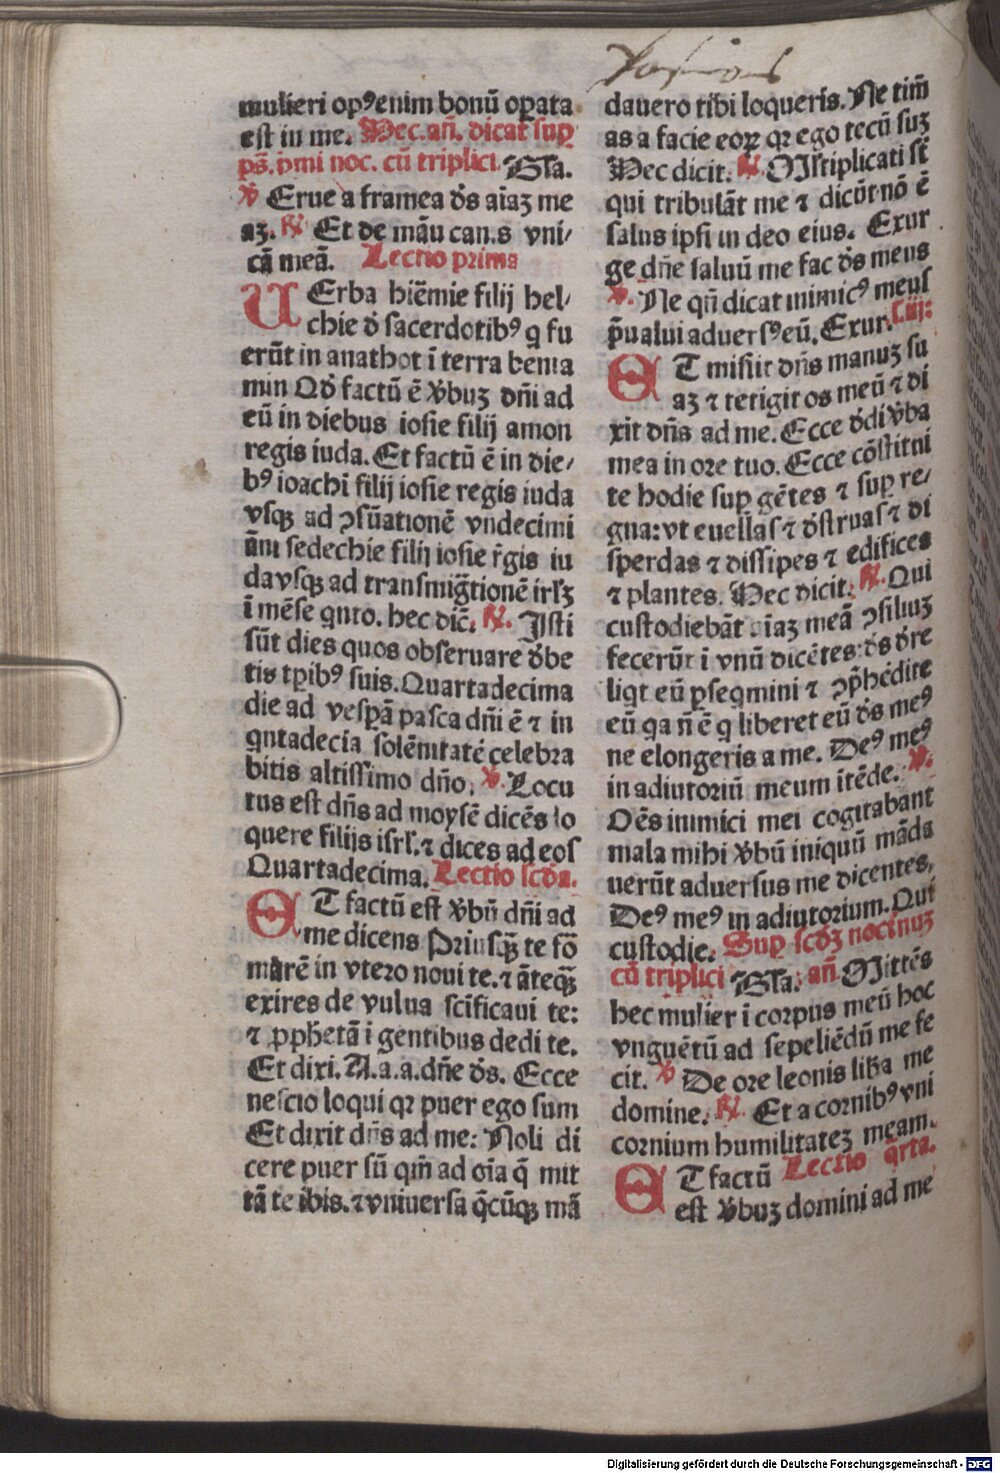 mulieri opꝰ enim bonū oꝑata
est in me. Hec. an̄. dicat̉ suꝑ
ps̄. p̄mi noc. cū triplici Gl̄a.
℣ Erue a framea d̄s aīaʒ me
aʒ. ℞ Et de māu can.s vni/
cā meā. Lectio prima
UErba hiēmie filij hel/
chie d̄ sacerdotibꝰ q fu
erūt in anathot ī terra benia
min Qd̄ factū ē v̄buʒ dn̄i ad
eū in diebus iosie filij amon
regis iuda. Et factū ē in die/
bꝰ ioachī filij iosie regis iuda
vsqꝫ ad ꝯsūationē vndecimi
ānī sedechie filij iosie r̄gis iu
da vsqꝫ ad transmigr̄tionē irl̄ʒ
ī mēse qnto. hec dic̄. ℞. Isti
sūt dies quos obseruare d̄be
tis tꝑibꝰ suis. Quartadecima
die ad vesꝑā pasca dn̄i ē ⁊ in
qntadecīa solēnitatē celebra
bitis altissimo dn̄o. ℣. Locu
tus est dn̄s ad moysē dicēs lo
quere filijs isrl̄. ⁊ dices ad eos
Quartadecima. Lectio scd̄a.
ET factū est v̄bū dn̄i ad
me dicens Priusqꝫ te fō
marē in vtero noui te. ⁊ āteqꝫ
exires de vulua scīficaui te:
⁊ ꝓphetā ī gentibus dedi te.
Et dixi. A.a.a.dn̄e d̄s. Ecce
nescio loqui qꝛ puer ego sum
Et dixit dn̄s ad me: Noli di
cere puer sū qm̄ ad oīa q̄ mit
tā te ibis. ⁊ vniuersa q̄cūqꝫ mā
dauero tibi loqueris. Ne tim̄
as a facie eoꝝ qꝛ ego tecū suʒ
Hec dicit. ℞. Mltiplicati st̄
qui tribulāt me ⁊ dicūt nō ē
salus ipsi in deo eius. Exur
ge dn̄e saluū me fac d̄s meus
℣. Ne qn̄ dicat inimicꝰ meus
p̄ualui aduersꝰ eū. Exur. L.iij:
ET misit dn̄s manuʒ su
aʒ ⁊ tetigit os meū ⁊ di
xit dn̄s ad me. Ecce d̄di v̄ba
mea in ore tuo. Ecce cōstitui
te hodie suꝑ gētes ⁊ suꝑ re/
gna: vt euellas ⁊ d̄struas ⁊ di
sperdas ⁊ dissipes ⁊ edifices
⁊ plantes. Hec dicit. ℞. Qui
custodiebāt aīaʒ meā ꝯsiliuʒ
fecerūt ī vnū dicētes: d̄s d̄re
liqt eū ꝑseqmini ⁊ ꝯp̄hēdite
eū qa n̄ ē q liberet eū d̄s meꝰ
ne elongeris a me. Deꝰ meꝰ
in adiutoriū meum ītēde. ℣.
Oēs inimici mei cogitabant
mala mihi v̄bū iniquū māda
uerūt aduersus me dicentes,
Deꝰ meꝰ in adiutorium. Qui
custodie. Suꝑ scd̄ʒ nocꝉnuʒ
cū triplici Gl̄a. an̄. Mittēs
hec mulier ī corpus meū hoc
vnguētū ad sepeliēdū me fe
cit. ℣ De ore leonis liƀa me
domine. ℞. Et a cornibꝰ vni
cornium humilitateʒ meam.
ET factū Lectio q̄rta.
est v̄buʒ domini ad me
Digitalisierung gefördert durch die Deutsche Forschungsgemeinschaft - DFG